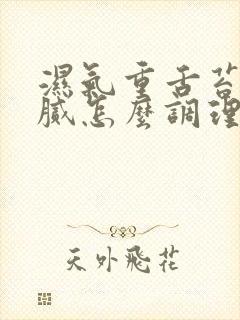 濕氣重舌苔
膩怎麼調理
天外飛花